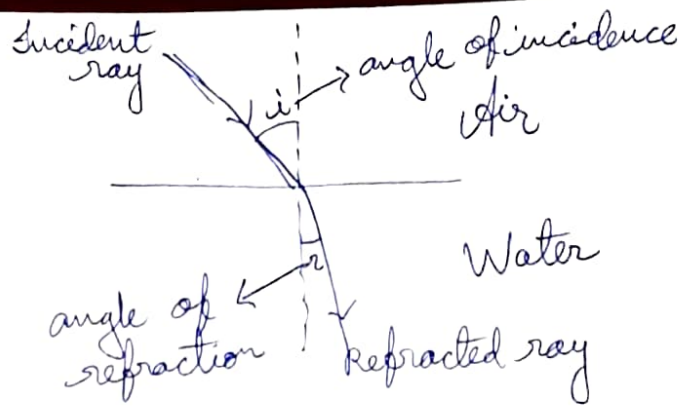 Incident
ray
i
angle of incidence
Air
Water
r
angle of
refraction
Refracted ray